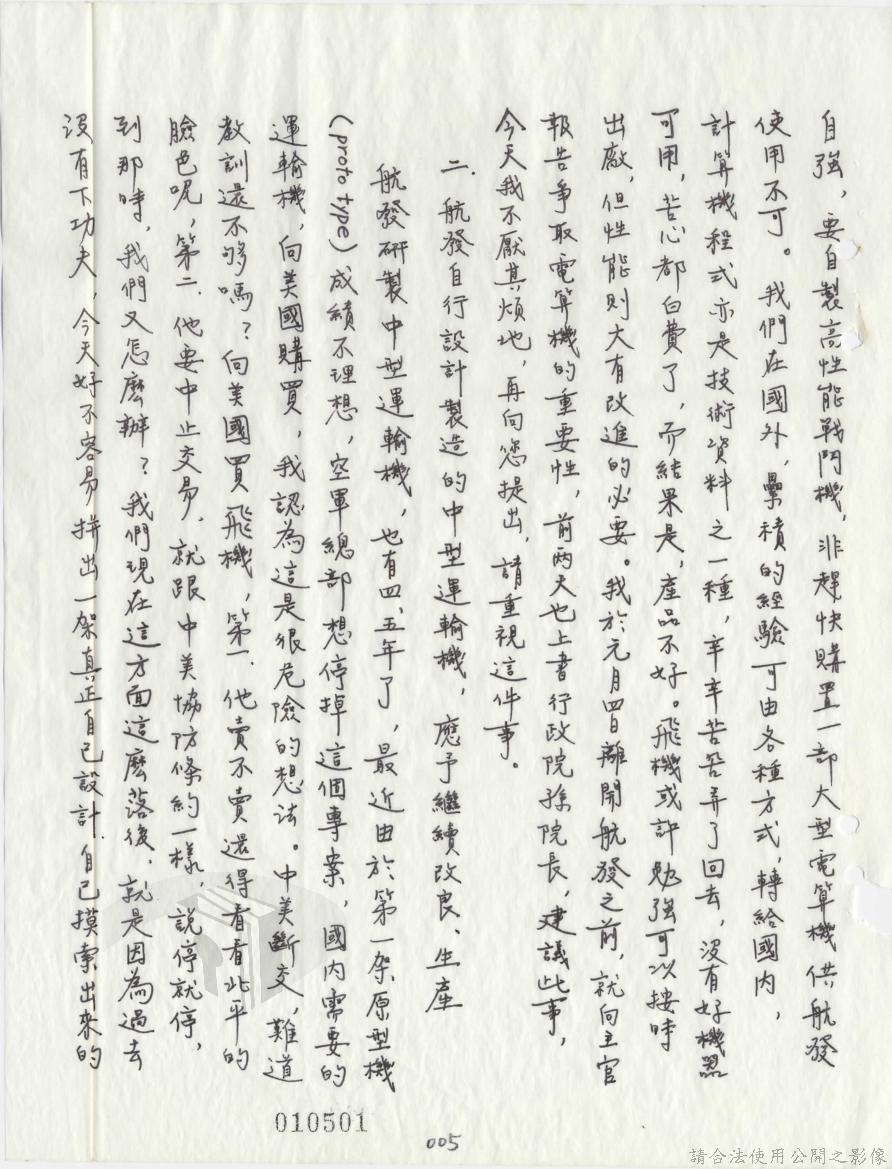 自強，要自製高性能戰鬥機，非趕快購置一部大型電算機供航發
使用不可。我們在國外，累積的經驗可由各種方式，轉給國內，
計算機程式亦是技術資料之一種，辛辛苦苦弄了回去，沒有好機器
可用，苦心都白費了，而結果是，產品不好。飛機或許勉強可以按時
出廠，但性能則大有改進的必要。我於元月四日離開航發之前，就向主官
報告爭取電算機的重要性，前兩天也上書行政院孫院長，建議此事，
今天我不厭其煩地，再向您提出，請重視這件事。
二、航發自行設計製造的中型運輸機，應予繼續改良、生產
航發研製中型運輸機，也有四、五年了，最近由於第一架原型機
(proto type)成績不理想，空軍總部想停掉這個專案，國內需要的
運輸機，向美國購買，我認為這是很危險的想法。中美斷交，難道
教訓還不夠嗎？向美國買飛機，第一、他賣不賣還得看看北平的
臉色呢，第二、他要中止交易，就跟中美協防條約一樣，說停就停，
到那時，我們又怎麼辦？我們現在這方面這麼落後，就是因為過去
沒有下功夫，今天好不容易拼出一架真正自己設計、自己摸索出來的
010501
005
請合法使用公開之影像